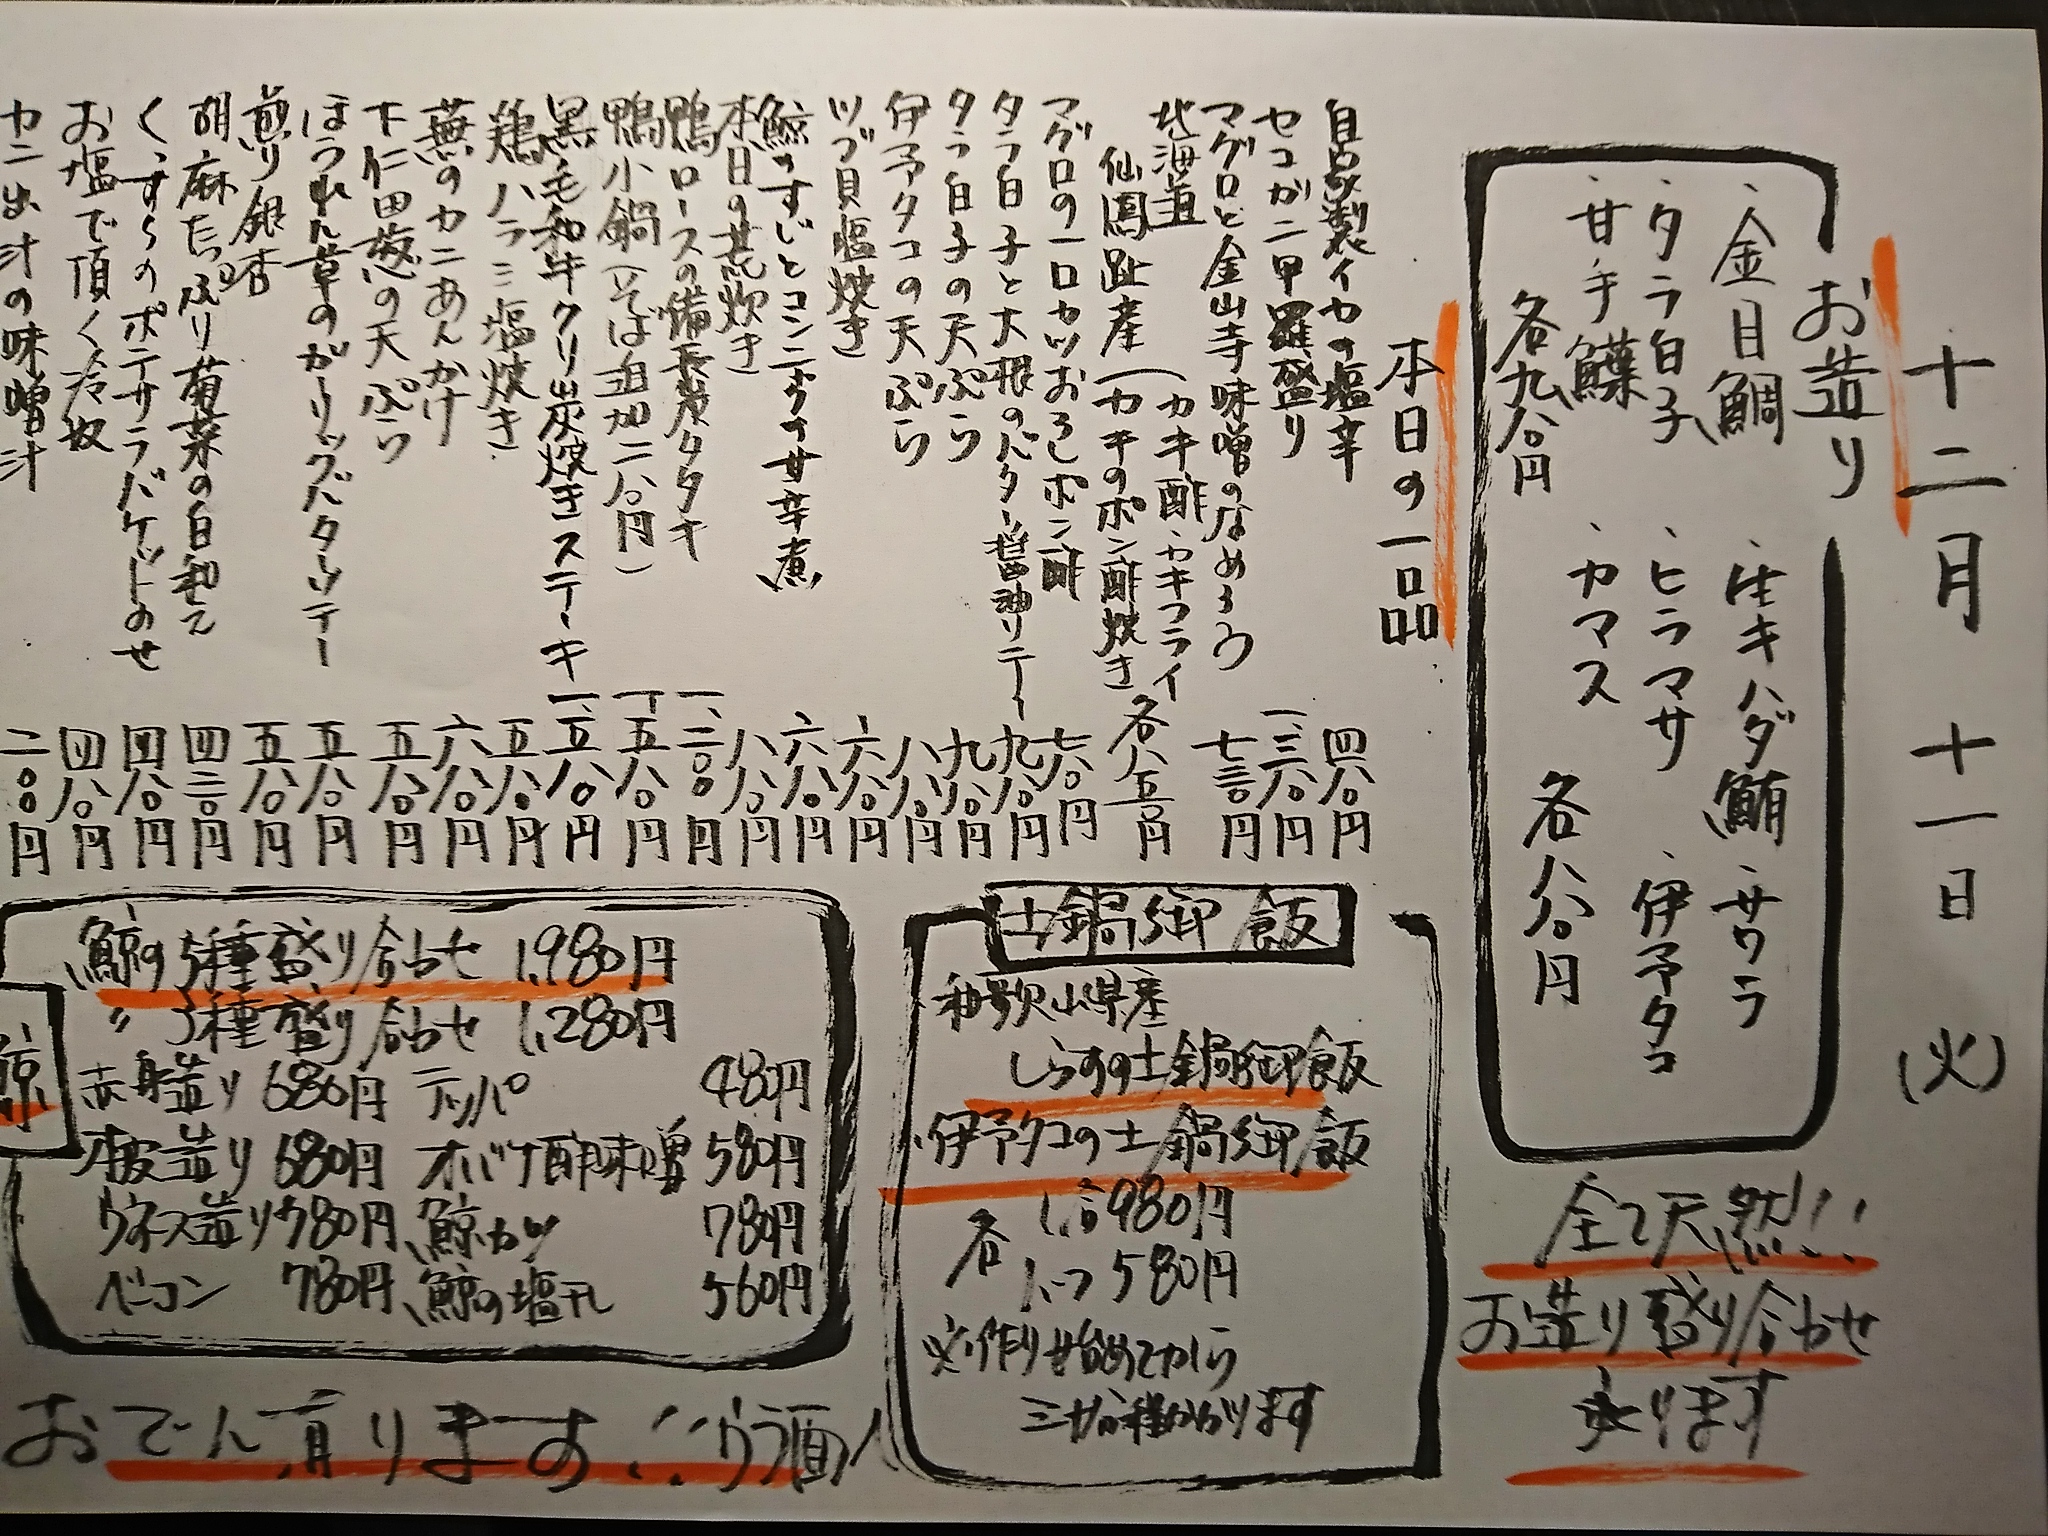 十二月 十一日 (火)
お造り
・金目鯛 ・生キハダ鮪 ・サワラ
・タラ白子 ・ヒラマサ ・伊予タコ
・甘手鰈 ・カマス
各九八〇円 各八八〇円
全て天然!!
お造り盛り合わせ
承ります
本日の一品
自家製イカの塩辛 四八〇円
セコガニ甲羅盛り 一、三八〇円
マグロと金山寺味噌のなめろう 七三〇円
北海道 (カキ酢・カキフライ
仙鳳趾産 (カキのポン酢焼き 各八五〇円
マグロの一口カツおろしポン酢 七八〇円
タラ白子と大根のバター醤油ソテー 九八〇円
タラ白子の天ぷら 九八〇円
伊予タコの天ぷら 八八〇円
ツブ貝塩焼き 六八〇円
鯨のすじとコンニャクの甘辛煮 六八〇円
本日の荒炊き 八八〇円
鴨ロースの備長炭タタキ 一、二〇〇円
鴨小鍋(そば追加二八〇円) 一、五八〇円
黒毛和牛クリ炭焼きステーキ 一、五八〇円
鶏ハラミ塩焼き 五八〇円
蕪のカニあんかけ 六八〇円
下仁田葱の天ぷら 五八〇円
ほうれん草のガーリックバターソテー 五八〇円
煎り銀杏 五八〇円
胡麻たっぷり菊菜の白和え 四三〇円
くずらのポテサラバケットのせ 四八〇円
お塩で頂く冷奴 四八〇円
カニ出汁の味噌汁 二〇〇円
土鍋御飯
和歌山県産
しらすの土鍋御飯
伊予タコの土鍋御飯
各 1合980円
ハーフ580円
※作り始めてから
三十分程かかります
鯨
鯨の5種盛り合わせ 1,980円
〃 3種盛り合わせ 1,280円
赤身造り 680円 テッパ 480円
本皮造り 680円 オバケ酢味噌 580円
ウネス造り 780円 鯨カツ 780円
ベーコン 780円 鯨の塩干し 560円
おでん有ります